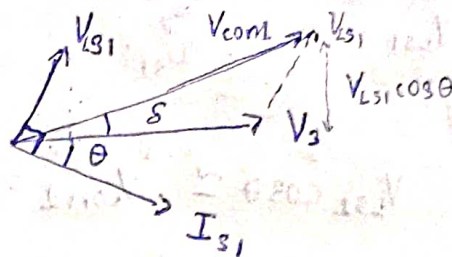 V_LS1
V_con1
V_LS1
V_LS1 cos θ
δ
V_3
θ
I_S1